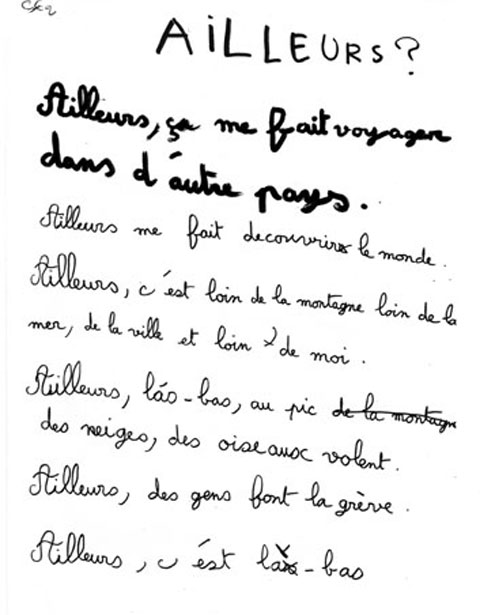 AiLLEURS?
Ailleurs, ça me fait voyager
dans d'autre pays.
Ailleurs me fait decouvrir le monde.
Ailleurs, c'est loin de la montagne loin de la
mer, de la ville et loin de moi.
Ailleurs, là-bas, au pic de la montagne
des neiges, des oiseaux volent.
Ailleurs, des gens font la grève.
Ailleurs, c'est là-bas